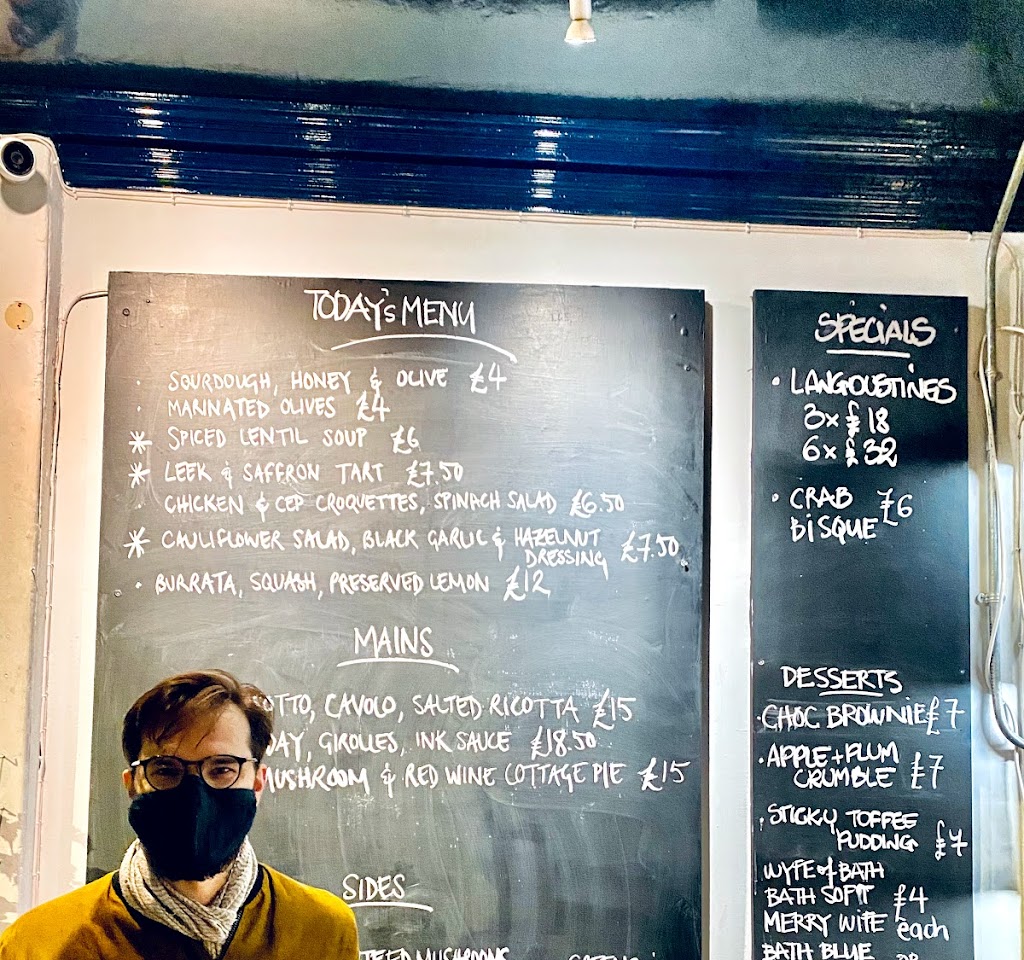 TODAY'S MENU
· SOURDOUGH, HONEY & OLIVE £4
· MARINATED OLIVES £4
* SPICED LENTIL SOUP £6
* LEEK & SAFFRON TART £7.50
· CHICKEN & CEP CROQUETTES, SPINACH SALAD £6.50
* CAULIFLOWER SALAD, BLACK GARLIC & HAZELNUT
DRESSING £7.50
· BURRATA, SQUASH, PRESERVED LEMON £12
MAINS
OTTO, CAVOLO, SALTED RICOTTA £15
DAY, GIROLLES, INK SAUCE £18.50
MUSHROOM & RED WINE COTTAGE PIE £15
SIDES
MUSHROOMS
SPECIALS
· LANGOUSTINES
3 x £18
6 x £32
· CRAB £6
BISQUE
DESSERTS
· CHOC BROWNIE £7
· APPLE + PLUM
CRUMBLE £7
· STICKY TOFFEE
PUDDING £7
WYFE of BATH
BATH SOFT £4
MERRY WIFE each
BATH BLUE